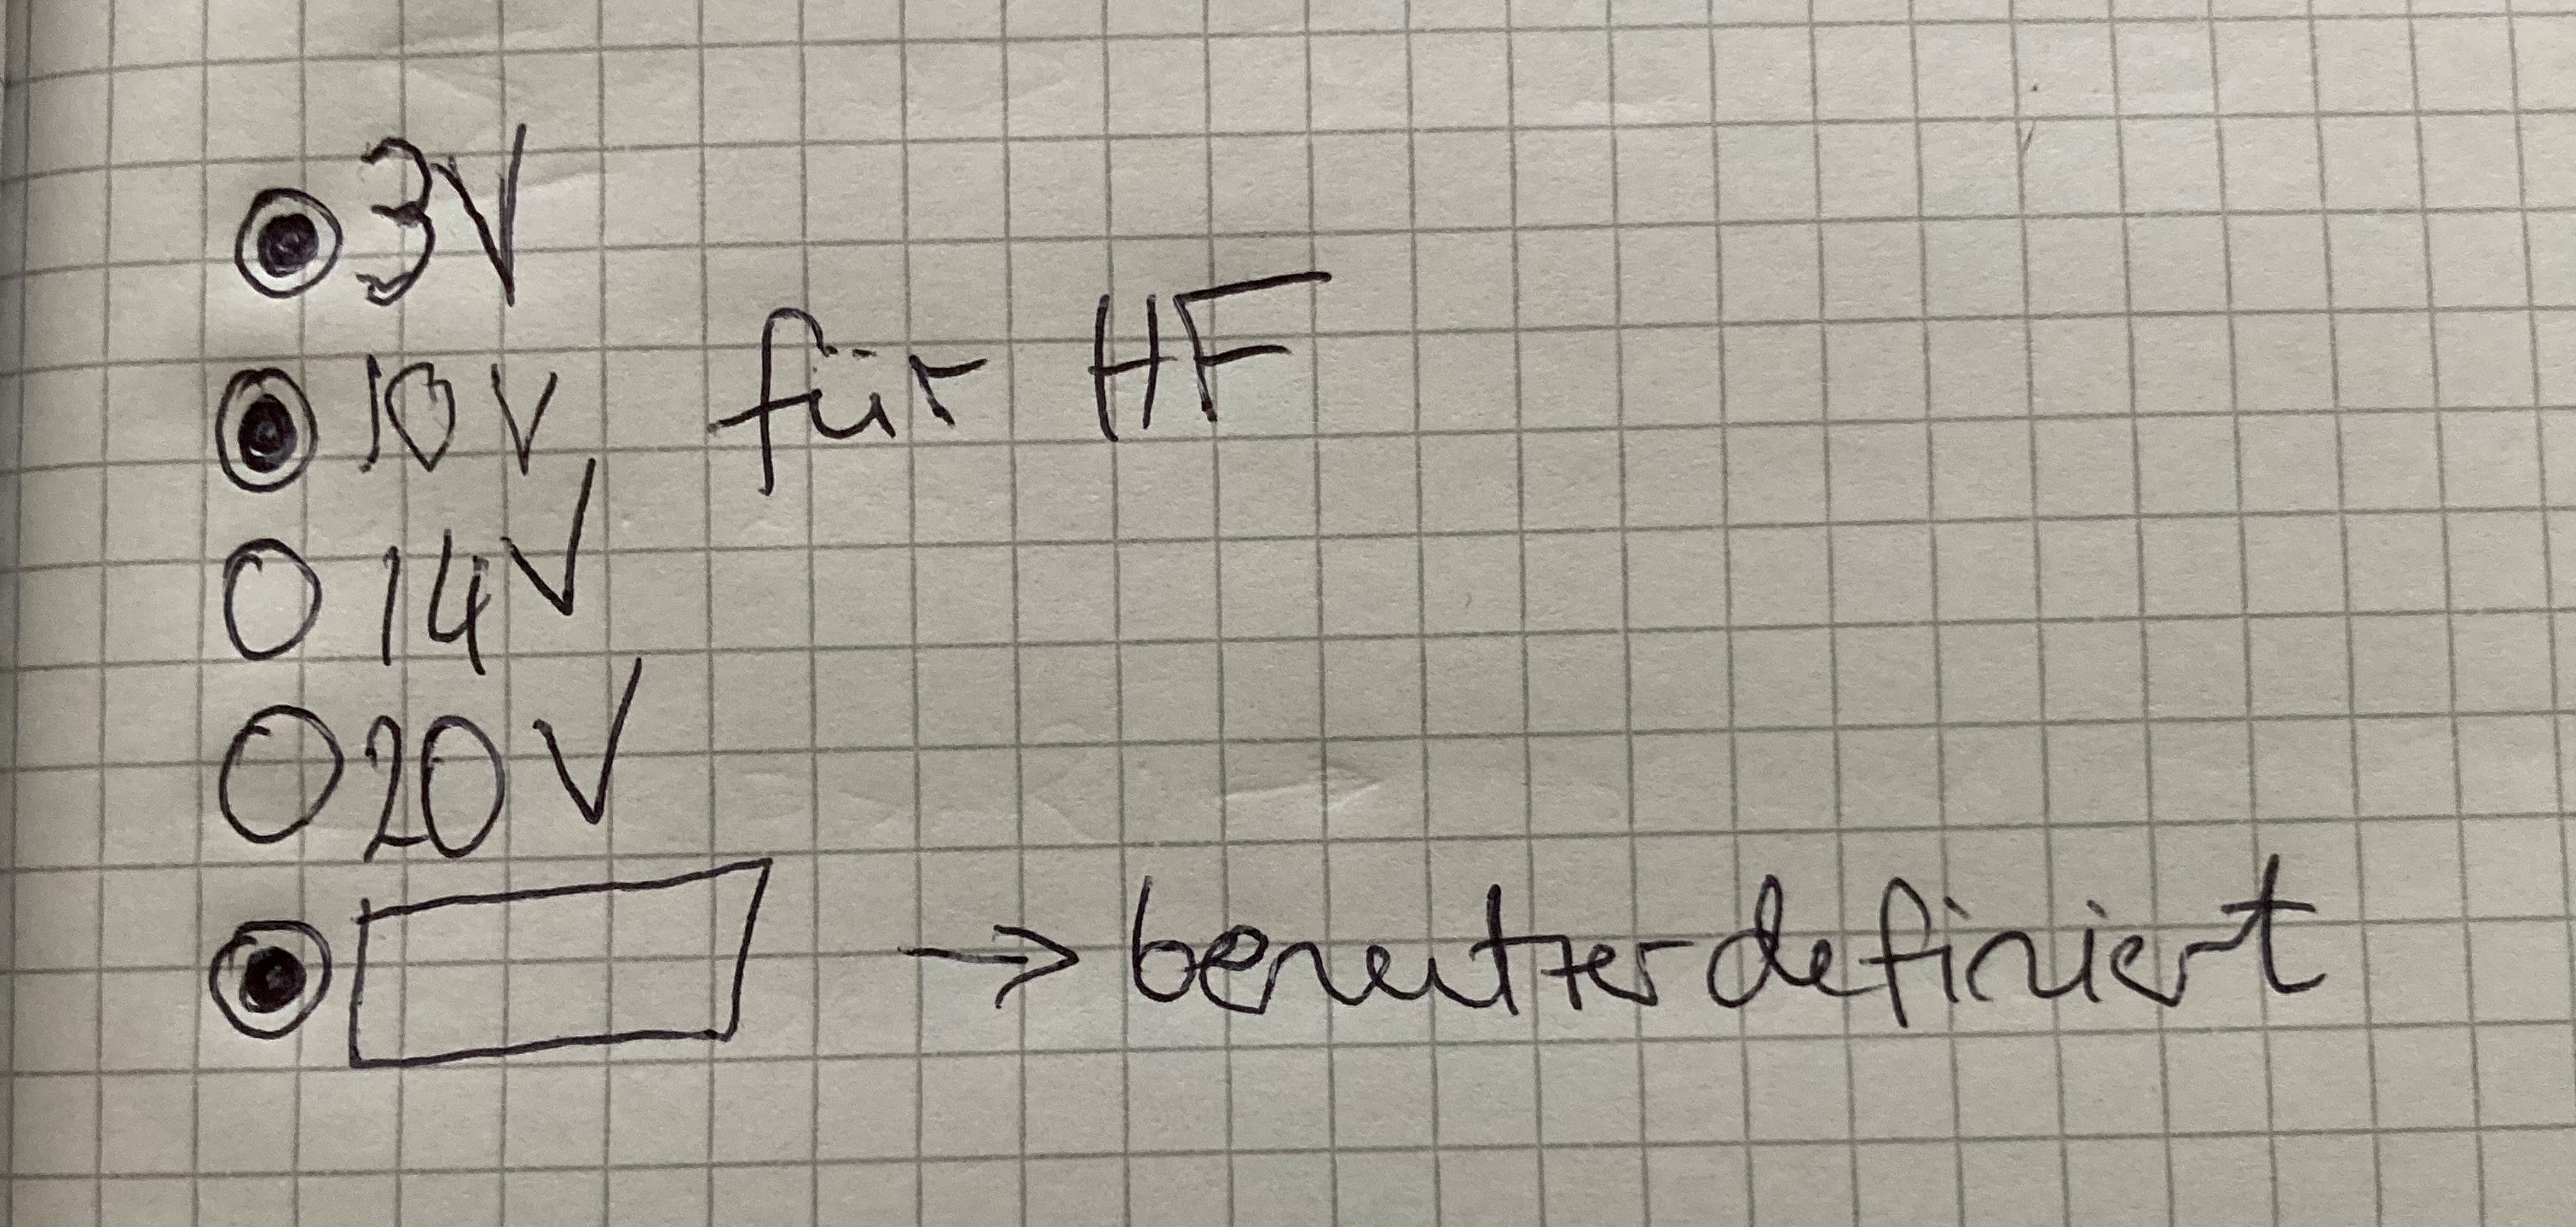 3V
10V für HF
14V
20V
→ benutzerdefiniert